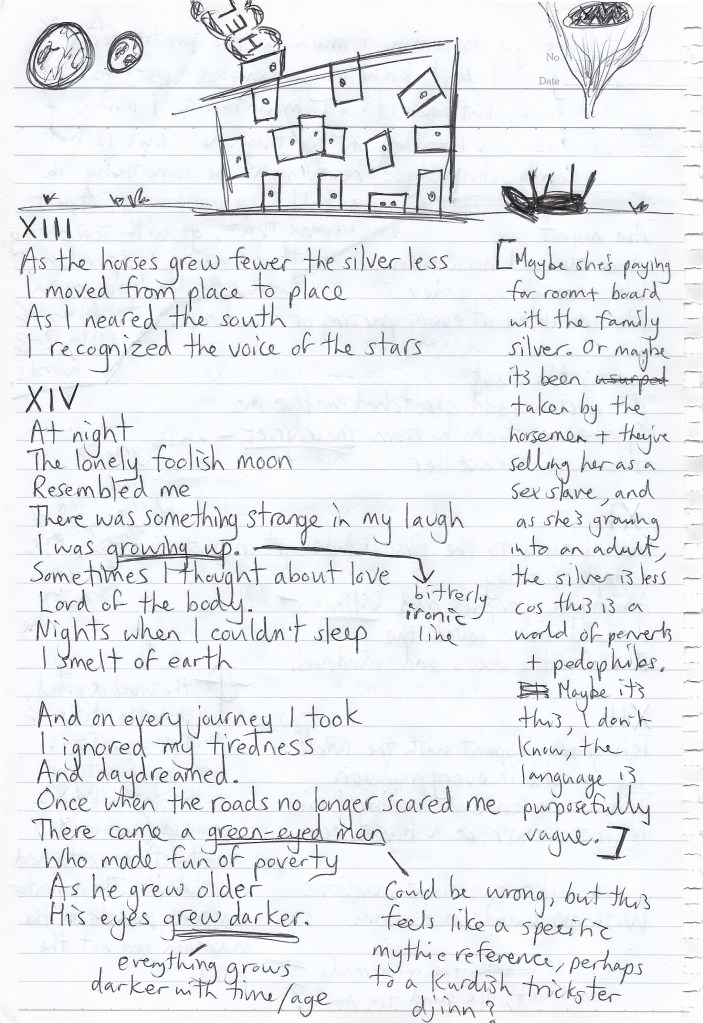 HEL
No
Date
XIII
As the horses grew fewer the silver less
I moved from place to place
As I neared the south
I recognized the voice of the stars
[Maybe she's paying
for room + board
with the family
silver. Or maybe
it's been usurped
taken by the
horsemen + they're
selling her as a
sex slave, and
as she's growing
into an adult,
the silver is less
cos this is a
world of perverts
+ pedophiles.
Maybe it's
this, I don't
know, the
language is
purposefully
vague.]
XIV
At night
The lonely foolish moon
Resembled me
There was something strange in my laugh
I was growing up.
Sometimes I thought about love
Lord of the body.
Nights when I couldn't sleep
I smelt of earth
bitterly
ironic
line
And on every journey I took
I ignored my tiredness
And daydreamed.
Once when the roads no longer scared me
There came a green-eyed man
Who made fun of poverty
As he grew older
His eyes grew darker.
everything grows
darker with time/age
Could be wrong, but this
feels like a specific
mythic reference, perhaps
to a Kurdish trickster
djinn?